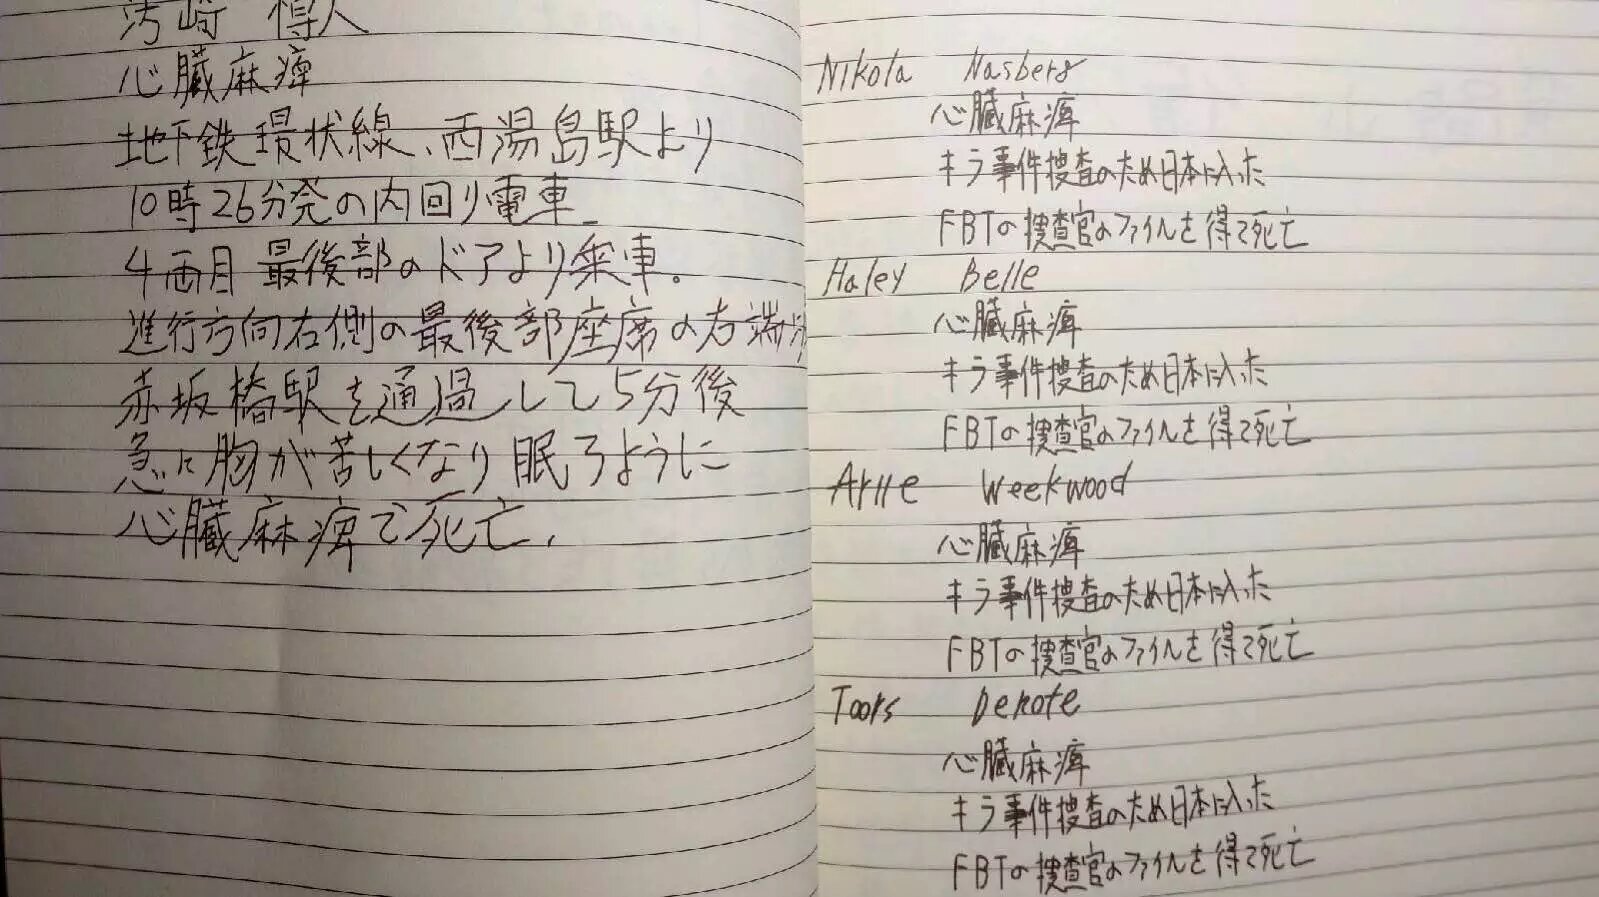 心臓麻痺
地下鉄環状線、西湯島駅より
10時26分発の内回り電車
4両目 最後部のドアより乗車。
進行方向右側の最後部座席の右端
赤坂橋駅を通過して5分後
急に胸が苦しくなり眠ろように
心臓麻痺で死亡.
Nikola Nasberg
心臓麻痺
キラ事件捜査のため日本に入った
FBIの捜査官のファイルを得て死亡
Haley Belle
心臓麻痺
キラ事件捜査のため日本に入った
FBIの捜査官のファイルを得て死亡
Arire Weekwood
心臓麻痺
キラ事件捜査のため日本に入った
FBIの捜査官のファイルを得て死亡
Toors Denote
心臓麻痺
キラ事件捜査のため日本に入った
FBIの捜査官のファイルを得て死亡